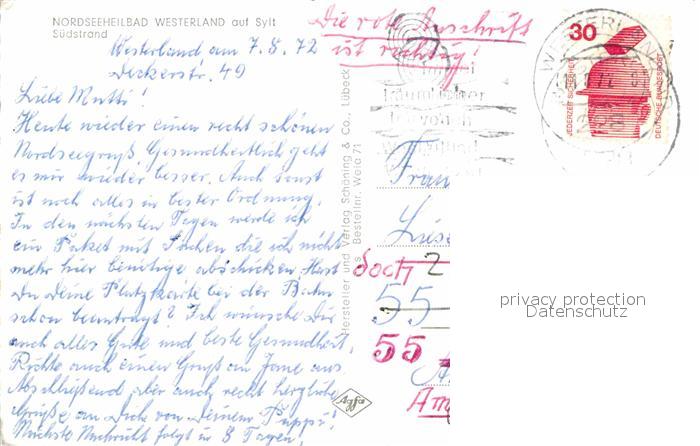 NORDSEEHEILBAD WESTERLAND auf Sylt
Südstrand
Die rote Anschrift
ist richtig!
Westerland am 7.8.72
Deckerstr. 49
Liebe Mutti!
Heute wieder einen recht schönen
Nordseegruß. Gesundheitlich geht
es mir wieder besser. Auch sonst
ist noch alles in bester Ordnung.
In den nächsten Tagen werde ich
ein Paket mit Sachen die ich nicht
mehr hier benötige abschicken. Hast
Du Deine Platzkarte bei der Bahn
schon beantragt? Ich wünsche Dir
auch alles Gute und beste Gesundheit.
Richte auch einen Gruß an
Abschließend aber auch recht herzliche
Grüße an Dich von Deinem
Nächste Nachricht folgt in 8 Tagen!
Hersteller und Verlag Schöning & Co., Lübeck
Bestellnr. Werla 71
Agfa
30
JEDERZEIT SICHERHEIT
DEUTSCHE BUNDESPOST
Frau
doch 2
55
55
Am
privacy protection
Datenschutz